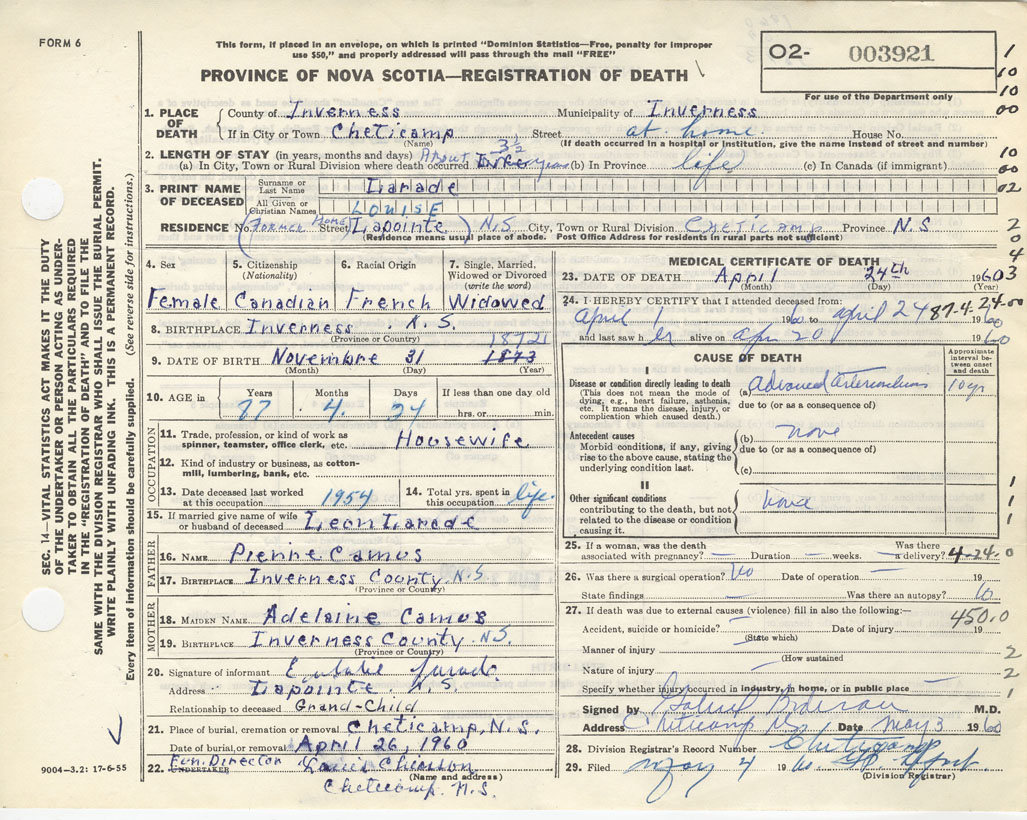 FORM 6
This form, if placed in an envelope, on which is printed "Dominion Statistics—Free, penalty for improper
use $50," and properly addressed will pass through the mail "FREE"
PROVINCE OF NOVA SCOTIA—REGISTRATION OF DEATH
O2- 003921
For use of the Department only
1. PLACE OF DEATH County of Inverness Municipality of Inverness
If in City or Town Cheticamp Street at home House No.
(Name) (If death occurred in a hospital or institution, give the name instead of street and number)
2. LENGTH OF STAY (in years, months and days) About 3½ years
(a) In City, Town or Rural Division where death occurred (b) In Province life (c) In Canada (if immigrant)
3. PRINT NAME OF DECEASED
Surname or Last Name Larade
All Given or Christian Names LOUISE
RESIDENCE No. (Former Home Street Lapointe) N.S. City, Town or Rural Division CHETICAMP Province N.S
(Residence means usual place of abode. Post Office Address for residents in rural parts not sufficient)
4. Sex Female
5. Citizenship (Nationality) Canadian
6. Racial Origin French
7. Single, Married, Widowed or Divorced (write the word) Widowed
8. BIRTHPLACE Inverness N.S.
(Province or Country)
9. DATE OF BIRTH Novembre 31 1873
(Month) (Day) (Year)
10. AGE in Years Months Days If less than one day old
77 4 24 hrs. or min.
OCCUPATION
11. Trade, profession, or kind of work as spinner, teamster, office clerk, etc. Housewife
12. Kind of industry or business, as cotton-mill, lumbering, bank, etc.
13. Date deceased last worked at this occupation 1954
14. Total yrs. spent in this occupation life
15. If married give name of wife or husband of deceased Leon Larade
FATHER
16. NAME Pierre Camus
17. BIRTHPLACE Inverness County N.S.
(Province or Country)
MOTHER
18. MAIDEN NAME Adelaine Camus
19. BIRTHPLACE Inverness County N.S.
(Province or Country)
20. Signature of informant
Address Lapointe N.S.
Relationship to deceased Grand-Child
21. Place of burial, cremation or removal Cheticamp, N.S.
Date of burial, or removal April 26, 1960
22. Fun. Director UNDERTAKER
(Name and address)
Cheticamp. N.S.
MEDICAL CERTIFICATE OF DEATH
23. DATE OF DEATH April 24th 1960
(Month) (Day) (Year)
24. I HEREBY CERTIFY that I attended deceased from:
April 1 1960 to april 24 1960
and last saw her alive on apr 20 1960
87-4-24-00
CAUSE OF DEATH
Approximate interval between onset and death
I
Disease or condition directly leading to death
(This does not mean the mode of dying, e.g., heart failure, asthenia, etc. It means the disease, injury, or complication which caused death.)
(a) Advanced 10 yrs
due to (or as a consequence of)
Antecedent causes
Morbid conditions, if any, giving rise to the above cause, stating the underlying condition last.
(b) none
due to (or as a consequence of)
(c)
II
Other significant conditions
contributing to the death, but not related to the disease or condition causing it. none
25. If a woman, was the death associated with pregnancy? — Duration — weeks. Was there a delivery?
4-24-0
26. Was there a surgical operation? No Date of operation — 19
State findings Was there an autopsy?
27. If death was due to external causes (violence) fill in also the following:—
450.0
Accident, suicide or homicide? — Date of injury 19
(State which)
Manner of injury
(How sustained
Nature of injury
Specify whether injury occurred in industry, in home, or in public place —
Signed by M.D.
Address Cheticamp N.S. Date May 3 1960
28. Division Registrar's Record Number
29. Filed May 4 1960
(Division Registrar)
SEC. 14—VITAL STATISTICS ACT MAKES IT THE DUTY
OF THE UNDERTAKER OR PERSON ACTING AS UNDER-
TAKER TO OBTAIN ALL THE PARTICULARS REQUIRED
IN THE "REGISTRATION OF DEATH" AND FILE THE
SAME WITH THE DIVISION REGISTRAR WHO SHALL ISSUE THE BURIAL PERMIT.
WRITE PLAINLY WITH UNFADING INK. THIS IS A PERMANENT RECORD.
Every item of information should be carefully supplied. (See reverse side for instructions.)
9004—3.2: 17-6-55
1
10
10
00
10
00
02
2
0
4
3
1
1
1
2
2
1